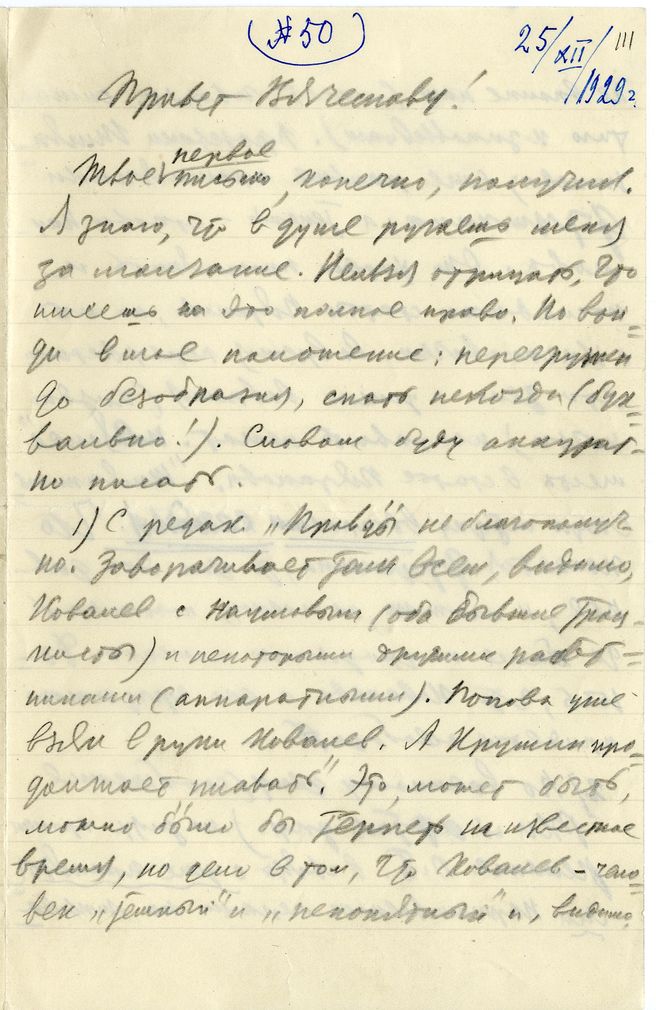 (#50)
25/XII/1929г.
III
Привет Вячеславу!
Твое первое письмо, конечно, получил.
Я знаю, что в душе ругаешь меня
за молчание. Нельзя отрицать, что
имеешь на это полное право. Но вой=
ди в мое положение: перегружен
до безобразия, спать некогда (бук=
вально!). Словом буду аккурат-
но писать.
1) С редак. „Правды" неблагополуч-
но. Заворачивает там всем, видимо,
Ковалев с Наумовым (оба бывшие троц-
кисты) и некоторыми другими работ=
никами (аппаратными). Попова уже
взял в руки Ковалев. А Крумин про-
должает плавать". Это, может быть,
можно было бы терпеть на известное
время, но дело в том, что Ковалев – чело=
век „темный" и „непонятный" и, видимо,